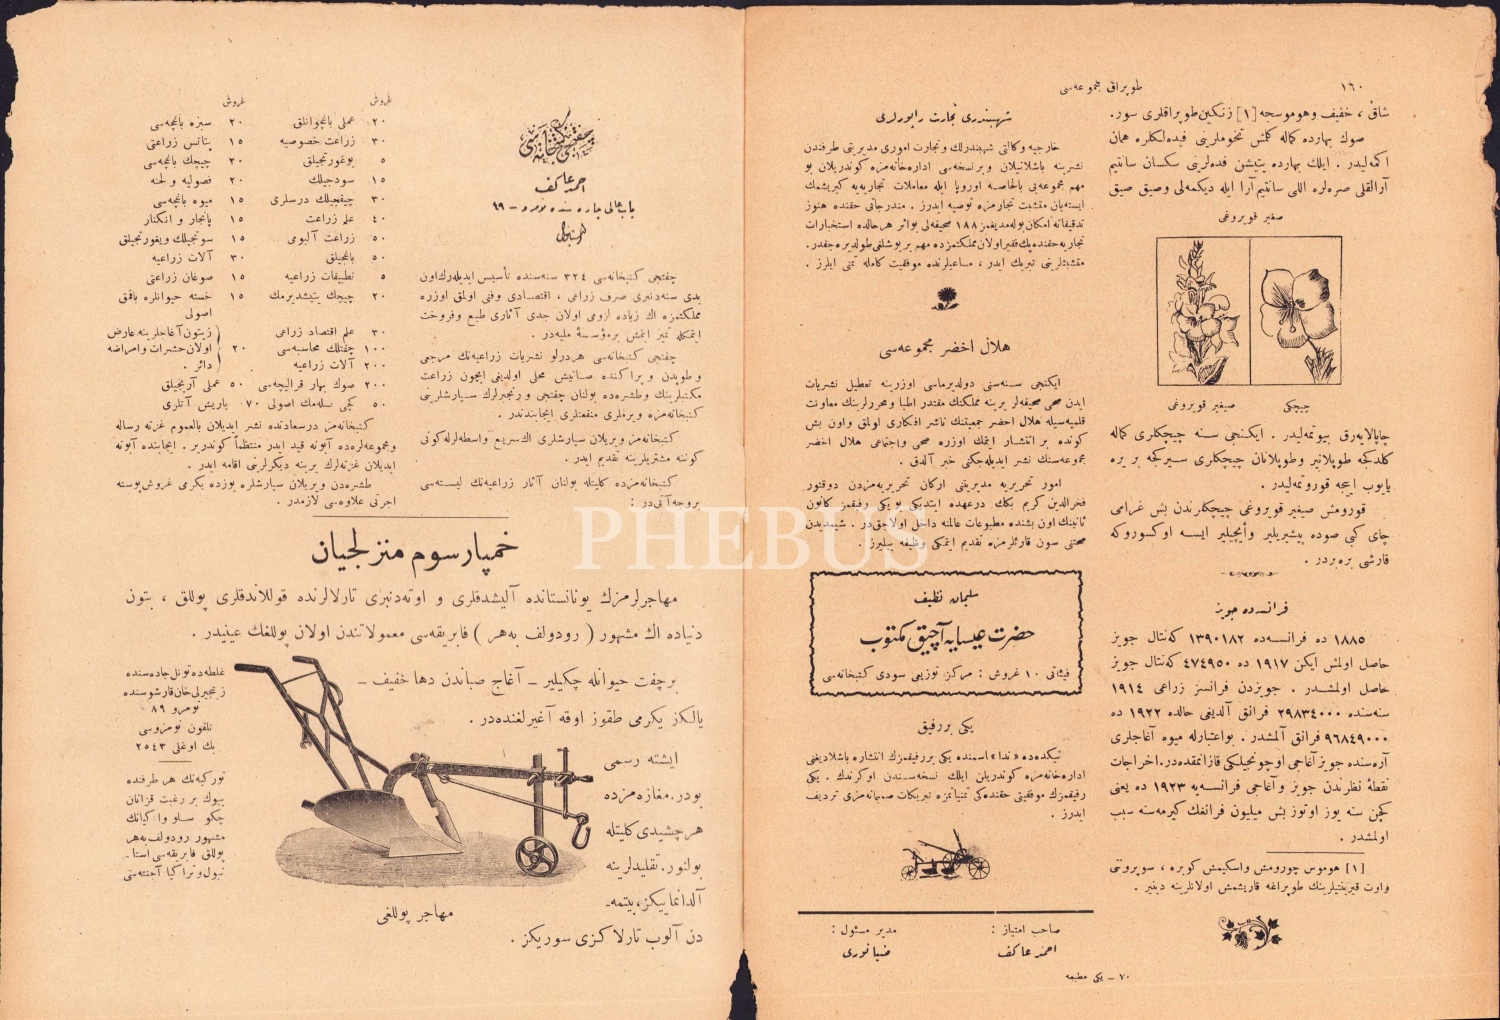 ١٦٠
طوپراق مجموعه‌سی
شاق ، خفیف وهوموسجه [١] زنکین طوپراقلری سور.
صوك بهارده کماله کلمش تخوملرینی فیده‌لکلره همان
اکمه‌لیدر. ایلك بهارده یتیشن فده‌لرینی سکسان سانتیم
آرالقلی صره‌لره اللی سانتیم آرا ایله دیکمه‌لی وصیق صیق
صغیر قویروغی
چیچکی
صیغیر قویروغی
چاپالایه‌رق بیوتمه‌لیدر . ایکنجی سنه چیچکلری کماله
کلدکجه طوپلانیر وطوپلانان چیچکلری سیرکجه بر یره
یایوب اییجه قوروتمه‌لیدر.
قورومش صیغیر قویروغی چیچکلرندن بش غرامی
چای کبی صوده پیشیریلیر وایچیلیر ایسه اوکسوروکه
قارشی بره‌بردر .
فرانسه‌ده جویز
١٨٨٥ ده فرانسه‌ده ١٣٩٠١٨٢ که‌نتال جویز
حاصل اولمش ایکن ١٩١٧ ده ٤٧٤٩٥٠ که‌نتال جویز
حاصل اولمشدر . جویزدن فرانسز زراعی ١٩١٤
سنه‌سنده ٢٩٨٣٤٠٠٠ فرانق آلدیغی حالده ١٩٢٢ ده
٩٦٨٤٩٠٠٠ فرانق آلمشدر . بواعتبارله میوه آغاجلری
آره‌سنده جویز آغاجی اوچونجیلکی قازانمقده‌در. اخراجات
نقطهٔ نظرندن جویز و آغاجی فرانسه‌یه ١٩٢٣ ده یعنی
کچن سنه یوز اوتوز بش میلیون فرانغك کیرمه‌سنه سبب
اولمشدر .
[١] هوموس چورومش واسکیمش کوبره ، سوپرونتی
واوت قیرینتیلرینك طوپراغه قاریشمش اولانلرینه دینیر .
شهبندری تجارت راپورلری
خارجیه وکالتی شهبندرلك وتجارت اموری مدیریتی طرفندن
نشرینه باشلانیلان وبرنسخه‌سی اداره‌خانه‌مزه کوندریلان بو
مهم مجموعه‌یی بالخاصه اوروپا ایله معاملات تجاریه‌یه کیریشمك
ایسته‌یان متشبث تجارمزه توصیه ایدرز . مندرجاتی حقنده هنوز
تدقیقاته امکان بوله‌مدیغمز ١٨٨ صحیفه‌لی بواثر هرحالده استخبارات
تجاریه حقنده پك فقیر اولان مملکتمزده مهم بر بوشلغی طولدیره‌جقدر.
متشبثلرینی تبریك ایدر ، مساعیلرنده موفقیت کامله تمنی ایلرز .
هلال اخضر مجموعه‌سی
ایکنجی سنه‌سنی دولدیرماسی اوزرینه تعطیل نشریات
ایدن صحی صحیفه‌لر یرینه مملکتك مقتدر اطبا ومحررلرینك معاونت
قلمیه‌سیله هلال اخضر جمعیتنك ناشر افکاری اولمق واون بش
کونده بر انتشار ایتمك اوزره صحی واجتماعی هلال اخضر
مجموعه‌سنك نشر ایدیله‌جکنی خبر آلدق .
امور تحریریه مدیریتنی ارکان تحریریه‌مزدن دوقتور
فخرالدین کریم بكك درعهده ایتدیکی بو یکی رفیقمز کانون
ثانینك اون بشنده مطبوعات عالمنه داخل اولاجق‌در . شیمدیدن
محتی سون قارئلرمزه تقدیم ایتمکی وظیفه بیلیرز .
سلیمان نظیف
حضرت عیسایه آچیق مکتوب
فیئاتی ١٠ غروش : مرکز توزیعی سودی کتبخانه‌سی
یکی بررفیق
نیکده‌ده «ندا» اسمنده یکی بررفیقمزك انتشاره باشلادیغنی
اداره‌خانه‌مزه کوندریلن ایلك نسخه‌سندن اوکرندك . یکی
رفیقمزك موفقیتی حقنده‌کی تمنیاتمزه تبریکات صمیمانه‌مزی تردیف
ایدرز .
صاحب امتیاز :
مدیر مسئول :
احمد عاکف
ضیا نوری
٧٠ – یکی مطبعه
چفتجی کتبخانه‌سی
احمد عاکف
بابعالی جاده سنده نومرو – ٩٩
استانبول
چفتجی کتبخانه‌سی ٣٢٤ سنه‌سنده تأسیس ایدیله‌رك اون
یدی سنه‌دنبری صرف زراعی ، اقتصادی وفنی اولمق اوزره
مملکتمزه اك زیاده لزومی اولان جدی آثاری طبع وفروخت
ایتمکله تمیز ایتمش برمؤسسهٔ ملیه‌در .
چفتجی کتبخانه‌سی هردرلو نشریات زراعیه‌نك مرجعی
وطوپدن وپراکنده صاتیش محلی اولدیغی ایچون زراعت
مکتبلرینك وطشره‌ده بولنان چفتجی و رنجبرلرك سپارشلرینی
کتبخانه‌مزه ویرملری منفعتلری ایجابندندر .
کتبخانه‌مز ویریلان سپارشلری اك سریع واسطه‌لرله کونی
کوننه مشتریلرینه تقدیم ایدر .
کتبخانه‌مزده کلیتله بولنان آثار زراعیه‌نك لیسته‌سی
بروجه آتی‌در :
غروش
٢٠ عملی باغچوانلق
٣٠ زراعت خصوصیه
٥ یوغورتجیلق
١٥ سودجیلك
٣٠ چیفجیلك درسلری
٤٠ علم زراعت
٥٠ زراعت آلبومی
٥٠ باغجیلق
٥ تطبیقات زراعیه
٢٠ چیچك یتیشدیرمك
٣٠ علم اقتصاد زراعی
١٠٠ چفتلك محاسبه‌سی
٢٠٠ آلات زراعیه
٢٠٠ صوك بهار قرالیچه‌سی
٥٠ کچی نسله‌مك اصولی
غروش
٢٠ سبزه باغچه‌سی
١٥ پتاتس زراعتی
٢٠ چیچك باغچه‌سی
٢٠ فصولیه و لحنه
١٥ میوه باغچه‌سی
١٥ پانجار و انکنار
١٥ سوتجیلك ویغورتجیلق
٣٠ آلات زراعیه
١٥ صوغان زراعتی
١٥ خسته حیوانلره باقمق
اصولی
زیتون آغاجلرینه عارض
٢٠ اولان حشرات وامراضه
دائر .
٥٠ عملی آریجیلق
٧٠ یاریش آتلری
کتبخانه‌مز درسعادتده نشر ایدیلان بالعموم غزته رساله
ومجموعه‌لره‌ده آبونه قید ایدر منتظماً کوندریر . ایجابنده آبونه
ایدیلان غزته‌لرك یرینه دیکرلرینی اقامه ایدر .
طشره‌دن ویریلان سپارشلره یوزده یکرمی غروش پوسته
اجرتی علاوه‌سی لازمدر .
خمپارسوم منزلجیان
مهاجرلرمزك یونانستانده آلیشدقلری و اوته‌دنبری تارلالرنده قوللاندقلری پوللق ، بتون
دنیاده اك مشهور ( رودولف به‌هر ) فابریقه‌سی معمولاتندن اولان پوللغك عینیدر .
برچفت حیوانله چکیلیر – آغاج صباندن دها خفیف –
یالکز یکرمی طقوز اوقه آغیرلغنده‌در .
ایشته رسمی
بودر. مغازه‌مزده
هرچشیدی کلیتله
بولنور. تقلیدلرینه
آلدانمایکز، بیتمه‌-
دن آلوب تارلاکزی سوریکز .
مهاجر پوللغی
غلطه‌ده تونل جاده‌سنده
زنجیرلی خان قارشوسنده
نومرو ٨٩
تلفون نومروسی
بك اوغلی ٢٥٤٣
تورکیه‌نك هر طرفنده
بیوك بر رغبت قزانان
مشهور رودولف به‌هر
پوللق فابریقه‌سی استا-
نبول وتراکیا آجنته‌سی
PHEBUS